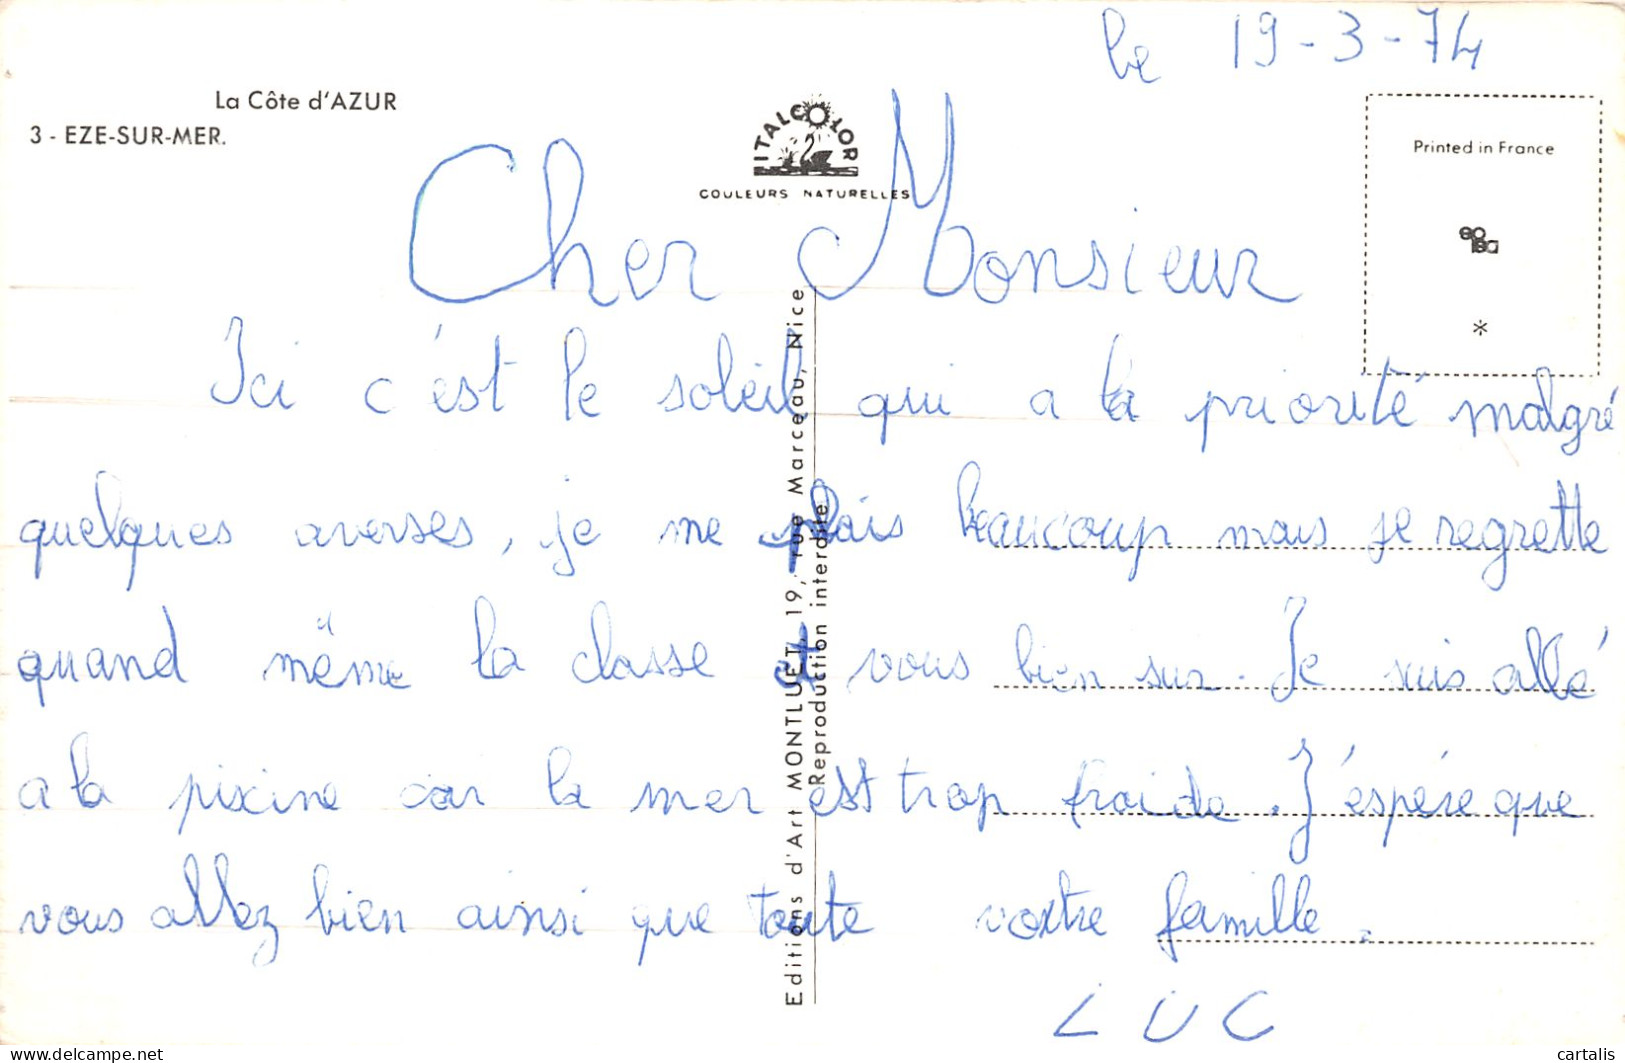 le 19-3-74
La Côte d'AZUR
3 - EZE-SUR-MER.
ITALCOLOR
COULEURS NATURELLES
Printed in France
*
Cher Monsieur
Ici c'est le soleil qui a la priorité malgré
quelques averses, je me plais beaucoup mais je regrette
quand même la classe et vous bien sur. Je suis allé
a la piscine car la mer est trop froide. J'éspére que
vous allez bien ainsi que toute votre famille.
LUC
Editions d'Art MONTLUET, 19, rue Marceau, Nice
Reproduction interdite
www.delcampe.net
cartalis